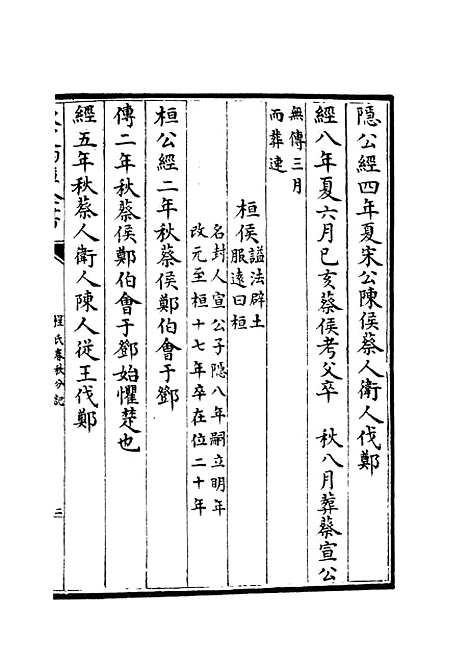 隱公經四年夏宋公陳侯蔡人衛人伐鄭
經八年夏六月已亥蔡侯考父卒　秋八月葬蔡宣公
無傳三月
而葬速
桓侯
諡法辟土
服遠曰桓
名封人宣公子隱八年嗣立明年
改元至桓十七年卒在位二十年
桓公經二年秋蔡侯鄭伯會于鄧
傳二年秋蔡侯鄭伯會于鄧始懼楚也
經五年秋蔡人衛人陳人從王伐鄭
程氏春秋分記
三